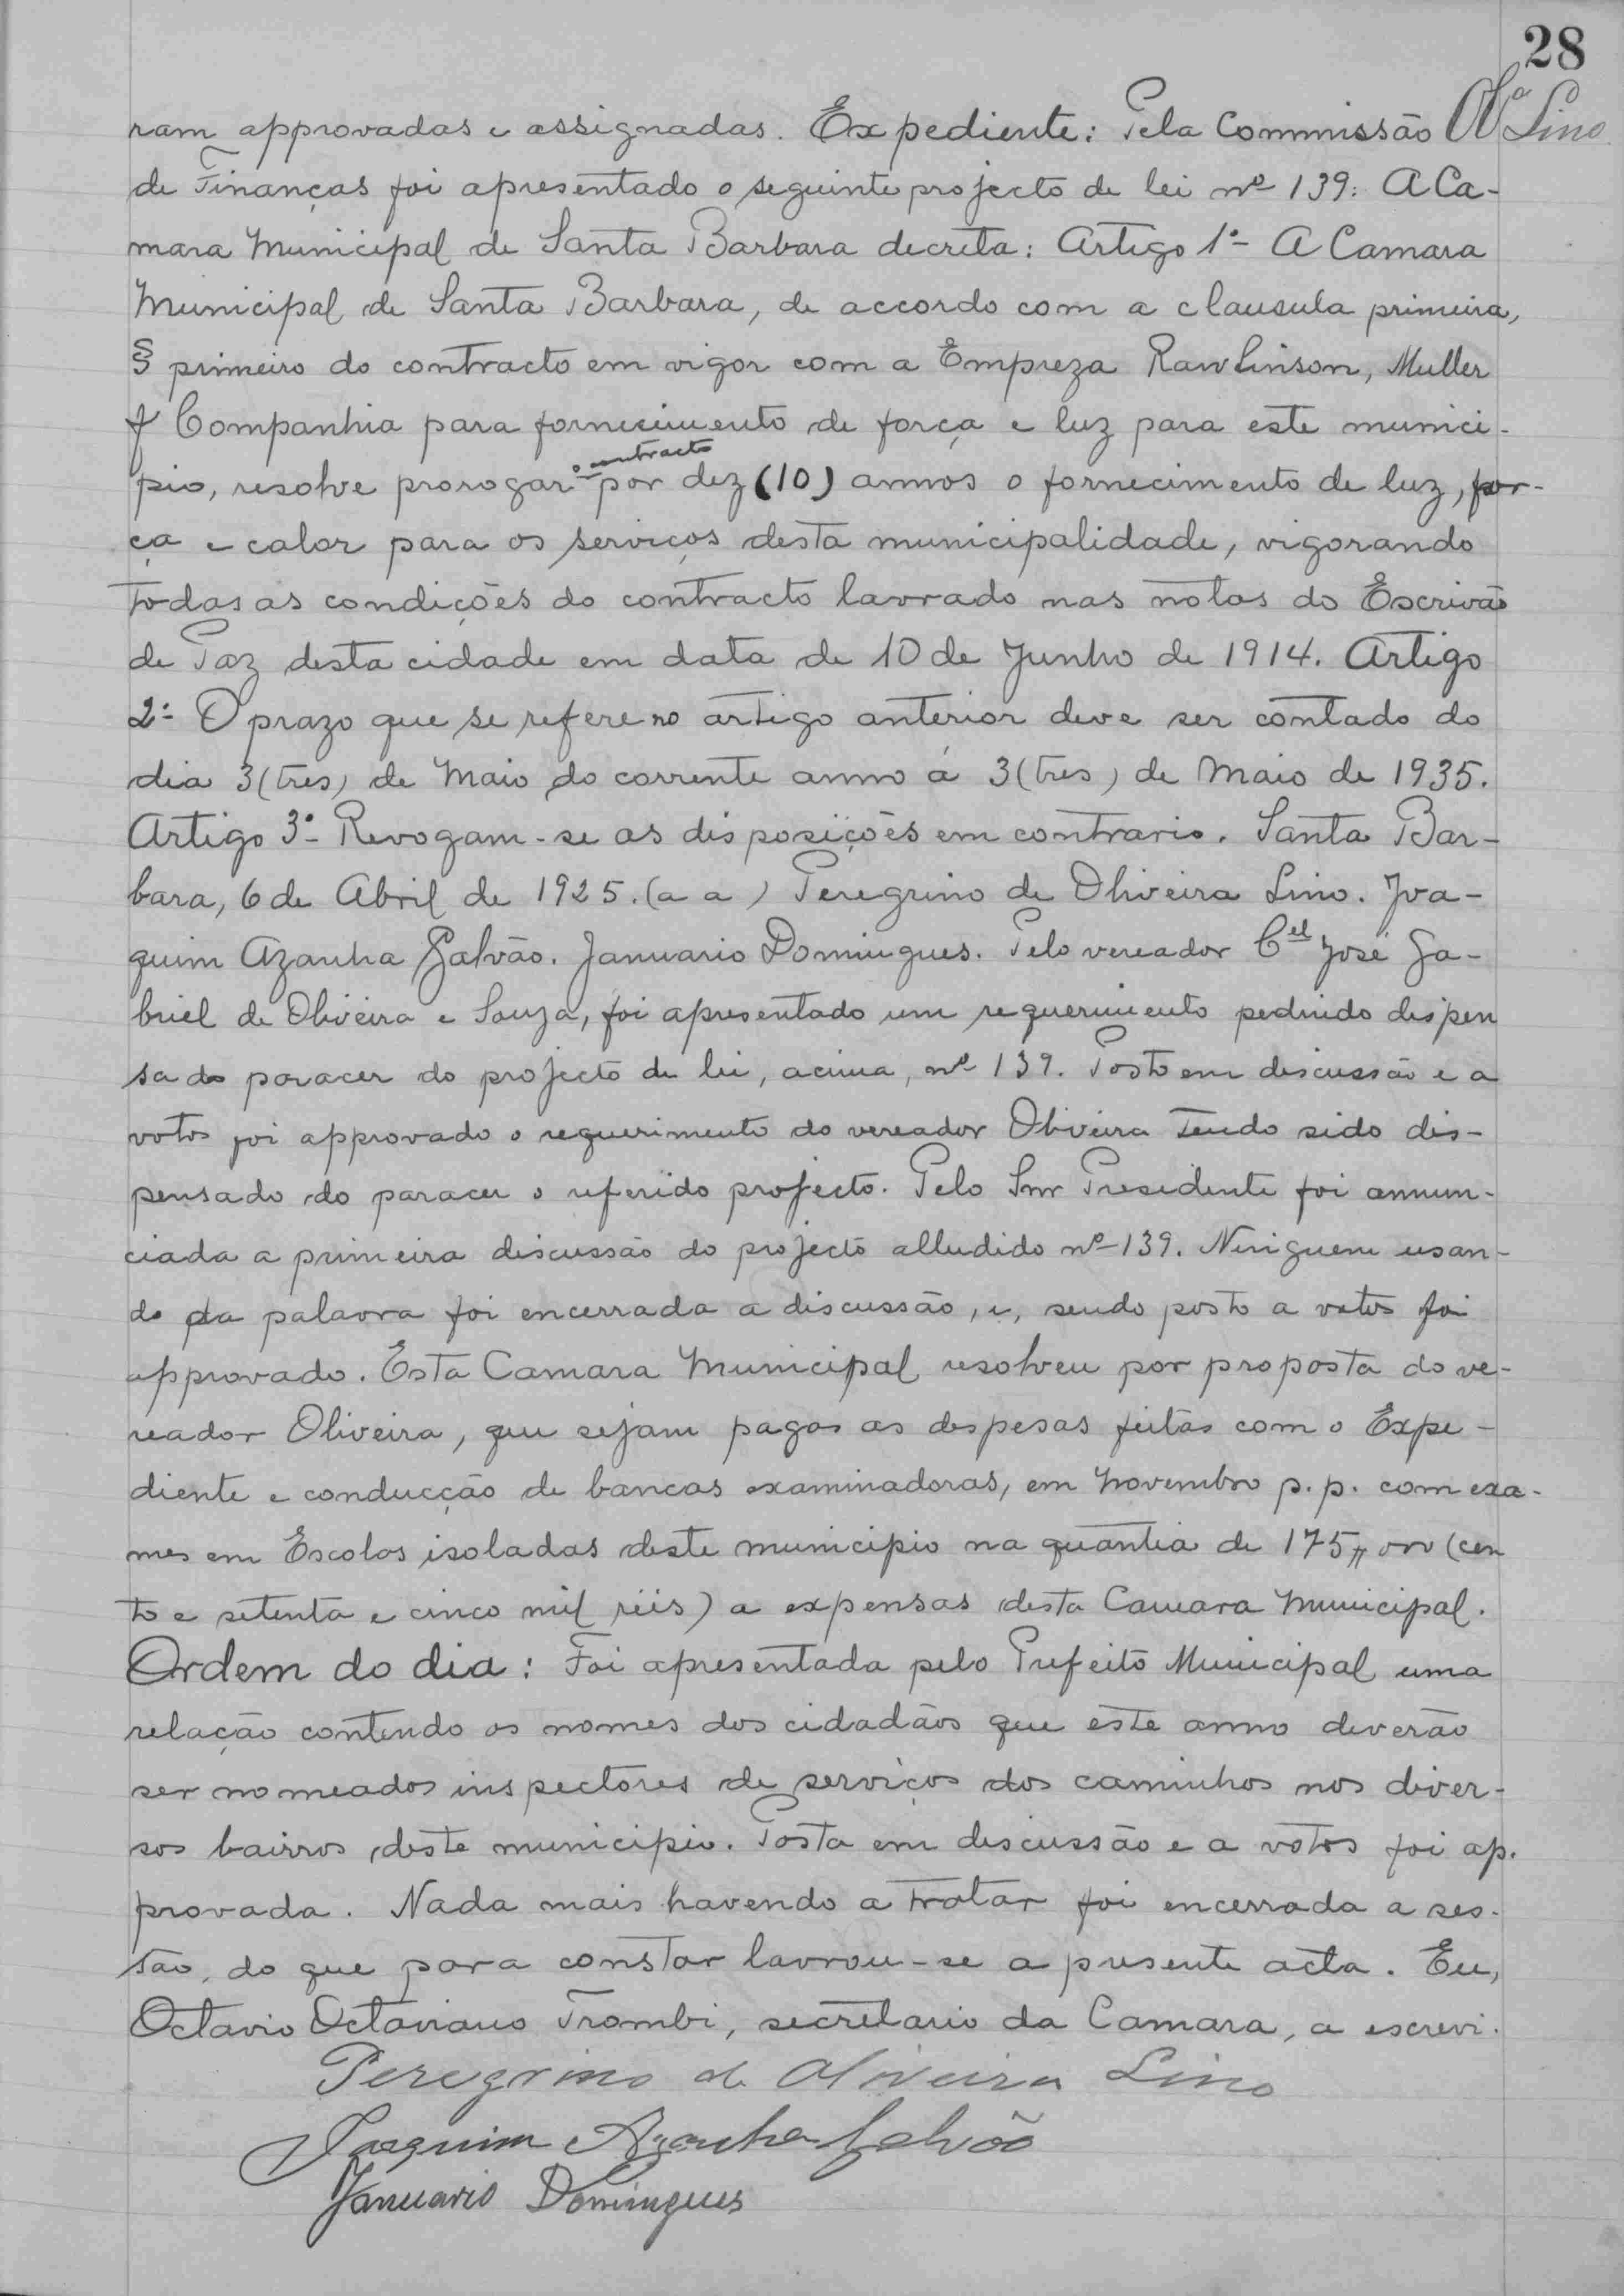 28
ram approvadas e assignadas. Expediente: Pela Commissão Olª Lino
de Finanças foi apresentado o seguinte projecto de lei nº 139: A Ca-
mara Municipal de Santa Barbara decreta: Artigo 1º- A Camara
Municipal de Santa Barbara, de accordo com a clausula primeira,
§ primeiro do contracto em vigor com a Empreza Rawlinson, Muller
& Companhia para fornecimento de força e luz para este munici-
o contracto
pio, resolve prorogar por dez (10) annos o fornecimento de luz, for-
ça e calor para os serviços desta municipalidade, vigorando
todas as condições do contracto lavrado nas notas do Escrivão
de Paz desta cidade em data de 10 de Junho de 1914. Artigo
2º- O prazo que se refere no artigo anterior deve ser contado do
dia 3 (tres) de Maio do corrente anno á 3 (tres) de Maio de 1935.
Artigo 3º- Revogam-se as disposições em contrario. Santa Bar-
bara, 6 de Abril de 1925. (a a) Peregrino de Oliveira Lino. Joa-
quim Azanha Galvão. Januario Domingues. Pelo vereador Cel José Ga-
briel de Oliveira e Souza, foi apresentado um requerimento pedindo dispen
sa do paracer do projecto de lei, acima, nº 139. Posto em discussão e a
votos foi approvado o requerimento do vereador Oliveira tendo sido dis-
pensado do paracer o referido projecto. Pelo Snr Presidente foi annun-
ciada a primeira discussão do projecto alludido nº 139. Ninguem usan-
do da palavra foi encerrada a discussão, e, sendo posto a votos foi
approvado. Esta Camara Municipal resolveu por proposta do ve-
reador Oliveira, que sejam pagas as despesas feitas com o Expe-
diente e conducção de bancas examinadoras, em Novembro p.p. com exa-
mes em Escolas isoladas deste municipio na quantia de 175$000 (cen
to e setenta e cinco mil réis) a expensas desta Camara Municipal.
Ordem do dia: Foi apresentada pelo Prefeito Municipal uma
relação contendo os nomes dos cidadãos que este anno deverão
ser nomeados inspectores de serviços dos caminhos nos diver-
sos bairros deste municipio. Posta em discussão e a votos foi ap-
provada. Nada mais havendo a tratar foi encerrada a ses-
são, do que para constar lavrou-se a presente acta. Eu,
Octavio Octaviano Trombi, secretario da Camara, a escrevi.
Peregrino de Oliveira Lino
Joaquim Azanha Galvão
Januario Domingues